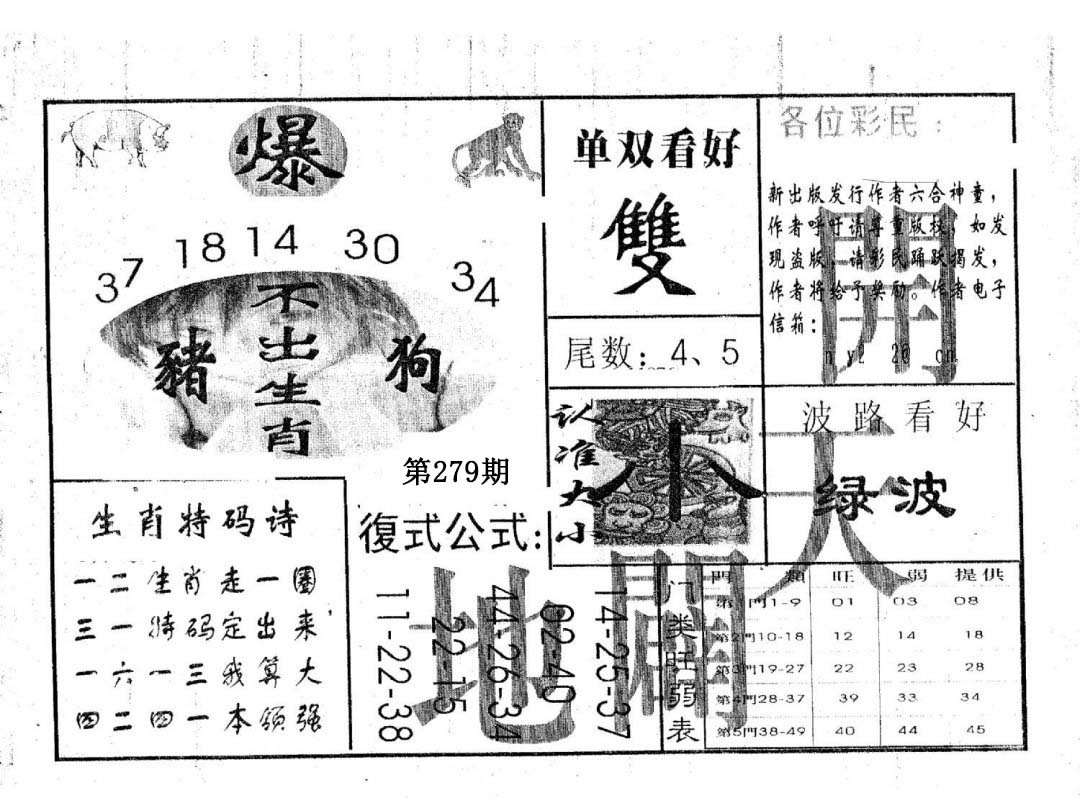 爆
37 18 14 30 34
不出生肖
豬
狗
第279期
单双看好
雙
尾数：4、5
认准大小
小
各位彩民：
新出版发行作者六合神童，
作者呼吁请尊重版权，如发
现盗版，请彩民踊跃揭发，
作者将给予奖励。作者电子
信箱：
波路看好
绿波
開
天
地
生肖特码诗
一二生肖走一圈
三一特码定出来
一六一三我算大
四二四一本领强
復式公式：
11-22-38
22-15
44-26-34
02-40
14-25-37
门类旺弱表
門 類 旺 弱 提供
第1門1-9 01 03 08
第2門10-18 12 14 18
第3門19-27 22 23 28
第4門28-37 39 33 34
第5門38-49 40 44 45